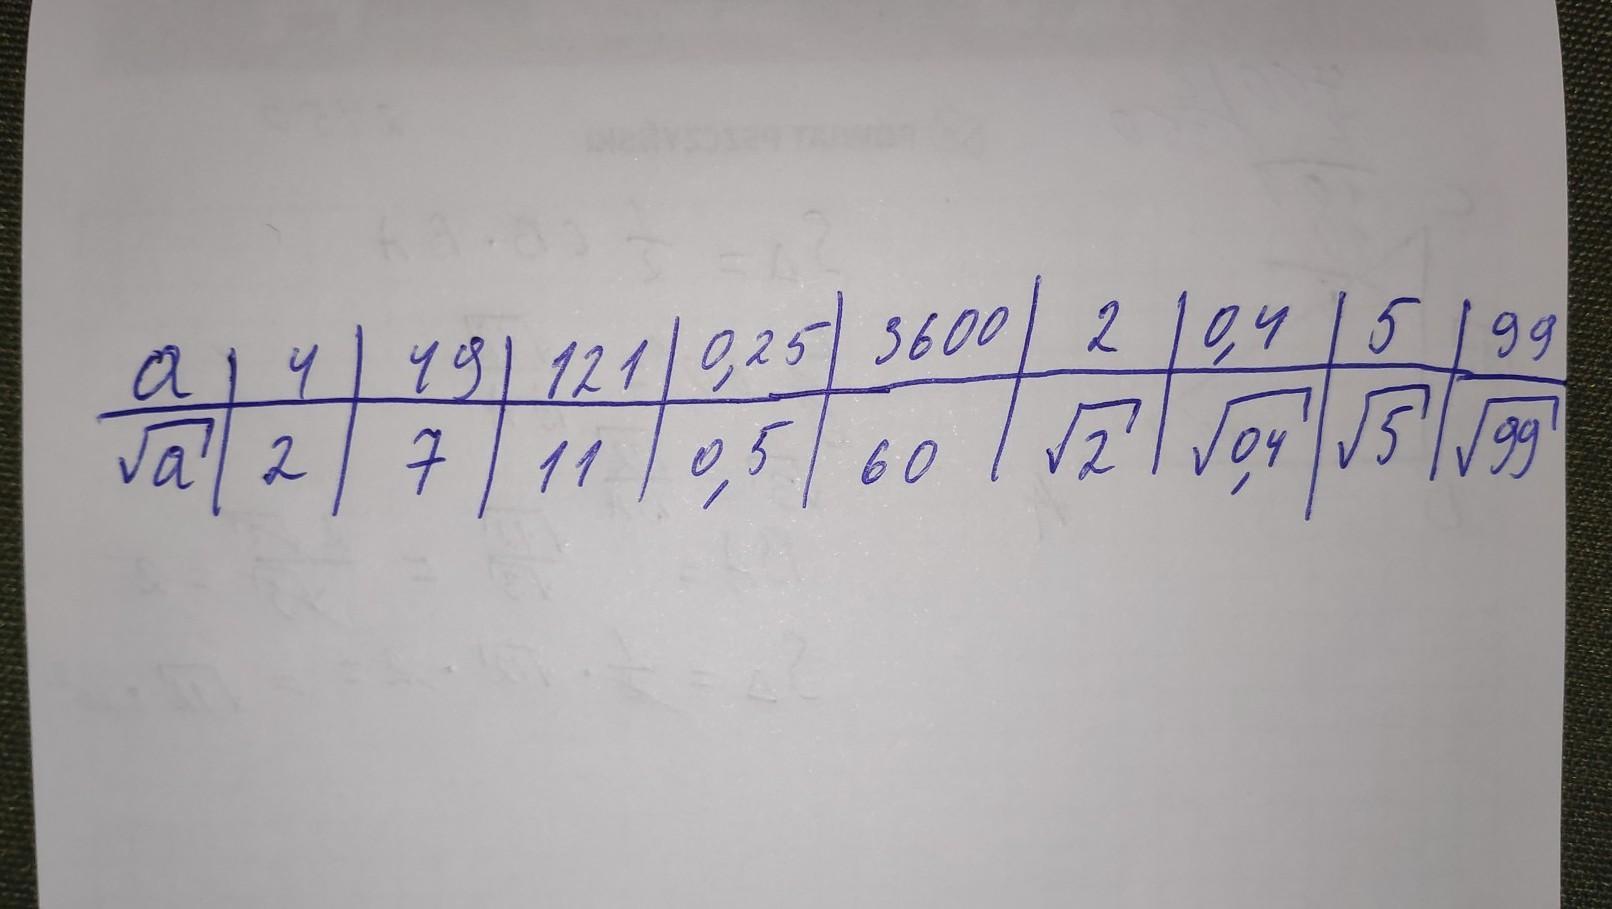 a | 4 | 49 | 121 | 0,25 | 3600 | 2 | 0,4 | 5 | 99
√a | 2 | 7 | 11 | 0,5 | 60 | √2 | √0,4 | √5 | √99